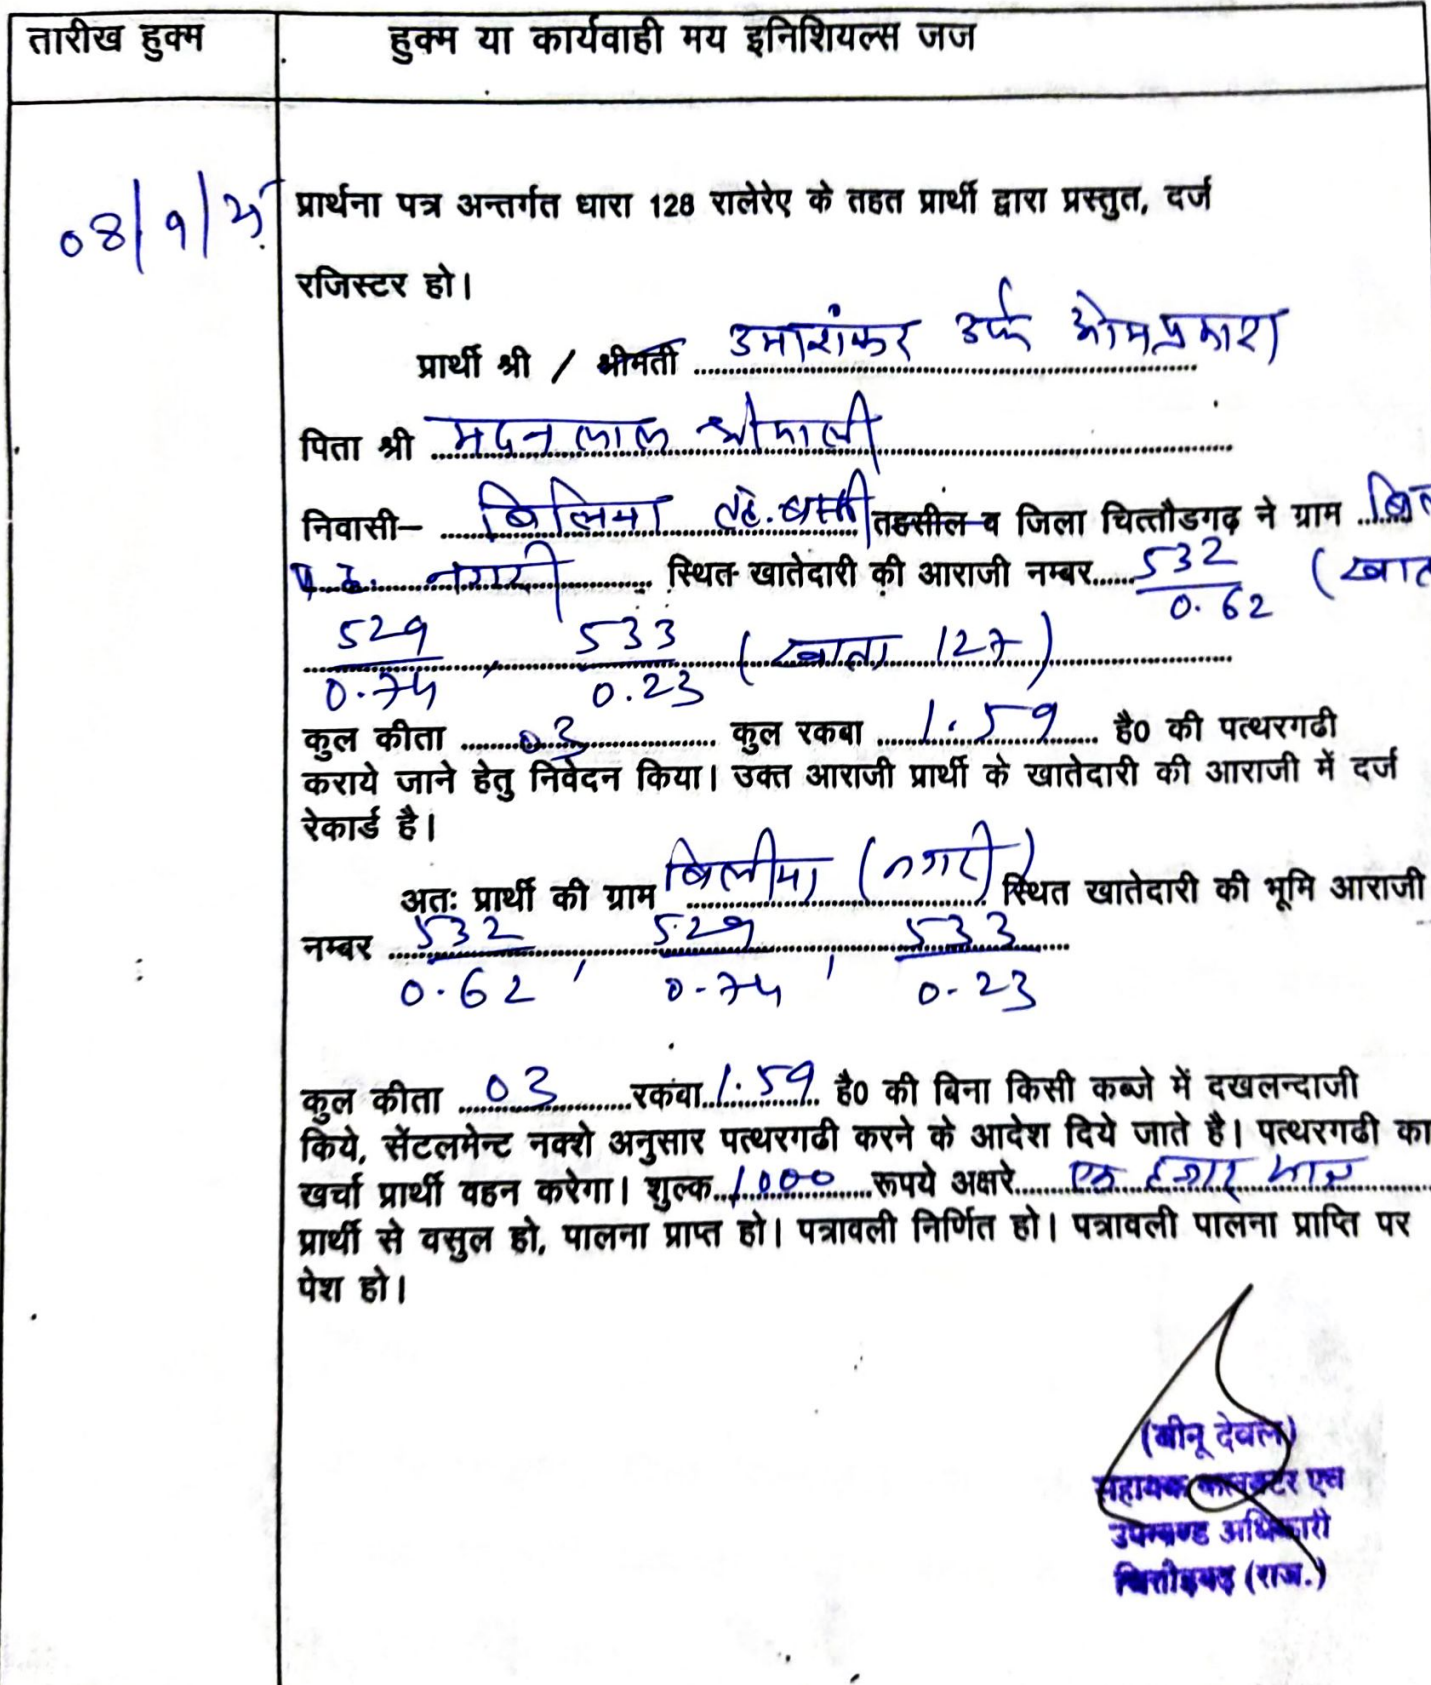 तारीख हुक्म
हुक्म या कार्यवाही मय इनिशियल्स जज
08/9/25
प्रार्थना पत्र अन्तर्गत धारा 128 रालेरेए के तहत प्रार्थी द्वारा प्रस्तुत, दर्ज
रजिस्टर हो।
प्रार्थी श्री / श्रीमती उमाशंकर उर्फ ओमप्रकाश
पिता श्री मदनलाल श्रीमाली
निवासी– बिलिया तह. बस्सी तहसील व जिला चित्तौडगढ़ ने ग्राम
प.ह. नगरी स्थित खातेदारी की आराजी नम्बर 532/0.62
529/0.74, 533/0.23 (खाता 127)
कुल कीता 03 कुल रकबा 1.59 है0 की पत्थरगढी
कराये जाने हेतु निवेदन किया। उक्त आराजी प्रार्थी के खातेदारी की आराजी में दर्ज
रेकार्ड है।
अतः प्रार्थी की ग्राम बिलीया (नगरी) स्थित खातेदारी की भूमि आराजी
नम्बर 532/0.62, 529/0.74, 533/0.23
कुल कीता 03 रकबा 1.59 है0 की बिना किसी कब्जे में दखलन्दाजी
किये, सेंटलमेन्ट नक्शे अनुसार पत्थरगढी करने के आदेश दिये जाते है। पत्थरगढी का
खर्चा प्रार्थी वहन करेगा। शुल्क 1000 रूपये अक्षरे एक हजार मात्र
प्रार्थी से वसुल हो, पालना प्राप्त हो। पत्रावली निर्णित हो। पत्रावली पालना प्राप्ति पर
पेश हो।
(बीनू देवल)
सहायक कलक्टर एवं
उपखण्ड अधिकारी
चित्तौड़गढ़ (राज.)